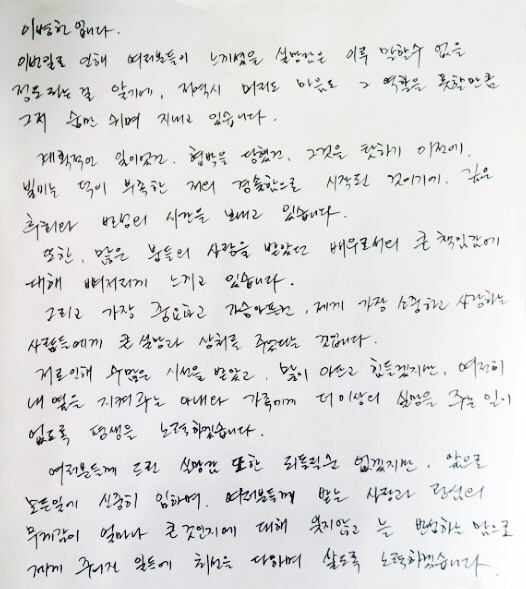 이병헌입니다.
이번일로 인해 여러분들이 느끼셨을 실망감은 이루 말할수 없을
정도라는 걸 알기에, 저역시 머리도 마음도 그 역할을 못할만큼
그저 숨만 쉬며 지내고 있습니다.
계획적인 일이었건, 협박을 당했건, 그것을 탓하기 이전에,
빌미는 덕이 부족한 저의 경솔함으로 시작된 것이기에, 깊은
후회와 반성의 시간을 보내고 있습니다.
또한, 많은 분들의 사랑을 받았던 배우로서의 큰 책임감에
대해 뼈저리게 느끼고 있습니다.
그리고 가장 중요하고 가슴아프건, 제게 가장 소중하고 사랑하는
사람들에게 큰 실망과 상처를 주었다는 것입니다.
저로인해 수많은 시선을 받았고, 많이 아프고 힘들겠지만, 여전히
내 옆을 지켜주는 아내와 가족에게 더이상의 실망을 주는 일이
없도록 평생을 노력하겠습니다.
여러분들께 드린 실망감 또한 되돌릴순 없겠지만, 앞으로
모든일에 신중히 임하며, 여러분들께 받는 사랑과 관심의
무게감이 얼마나 큰 것인지에 대해 잊지않고 늘 반성하는 맘으로
제게 주어진 일들에 최선을 다하며 살도록 노력하겠습니다.